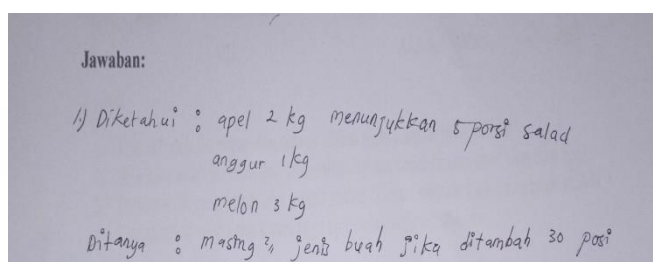 Jawaban:
1.) Diketahui : apel 2 kg menunjukkan 5 porsi salad
anggur 1 kg
melon 3 kg
Ditanya : masing², jenis buah jika ditambah 30 posi